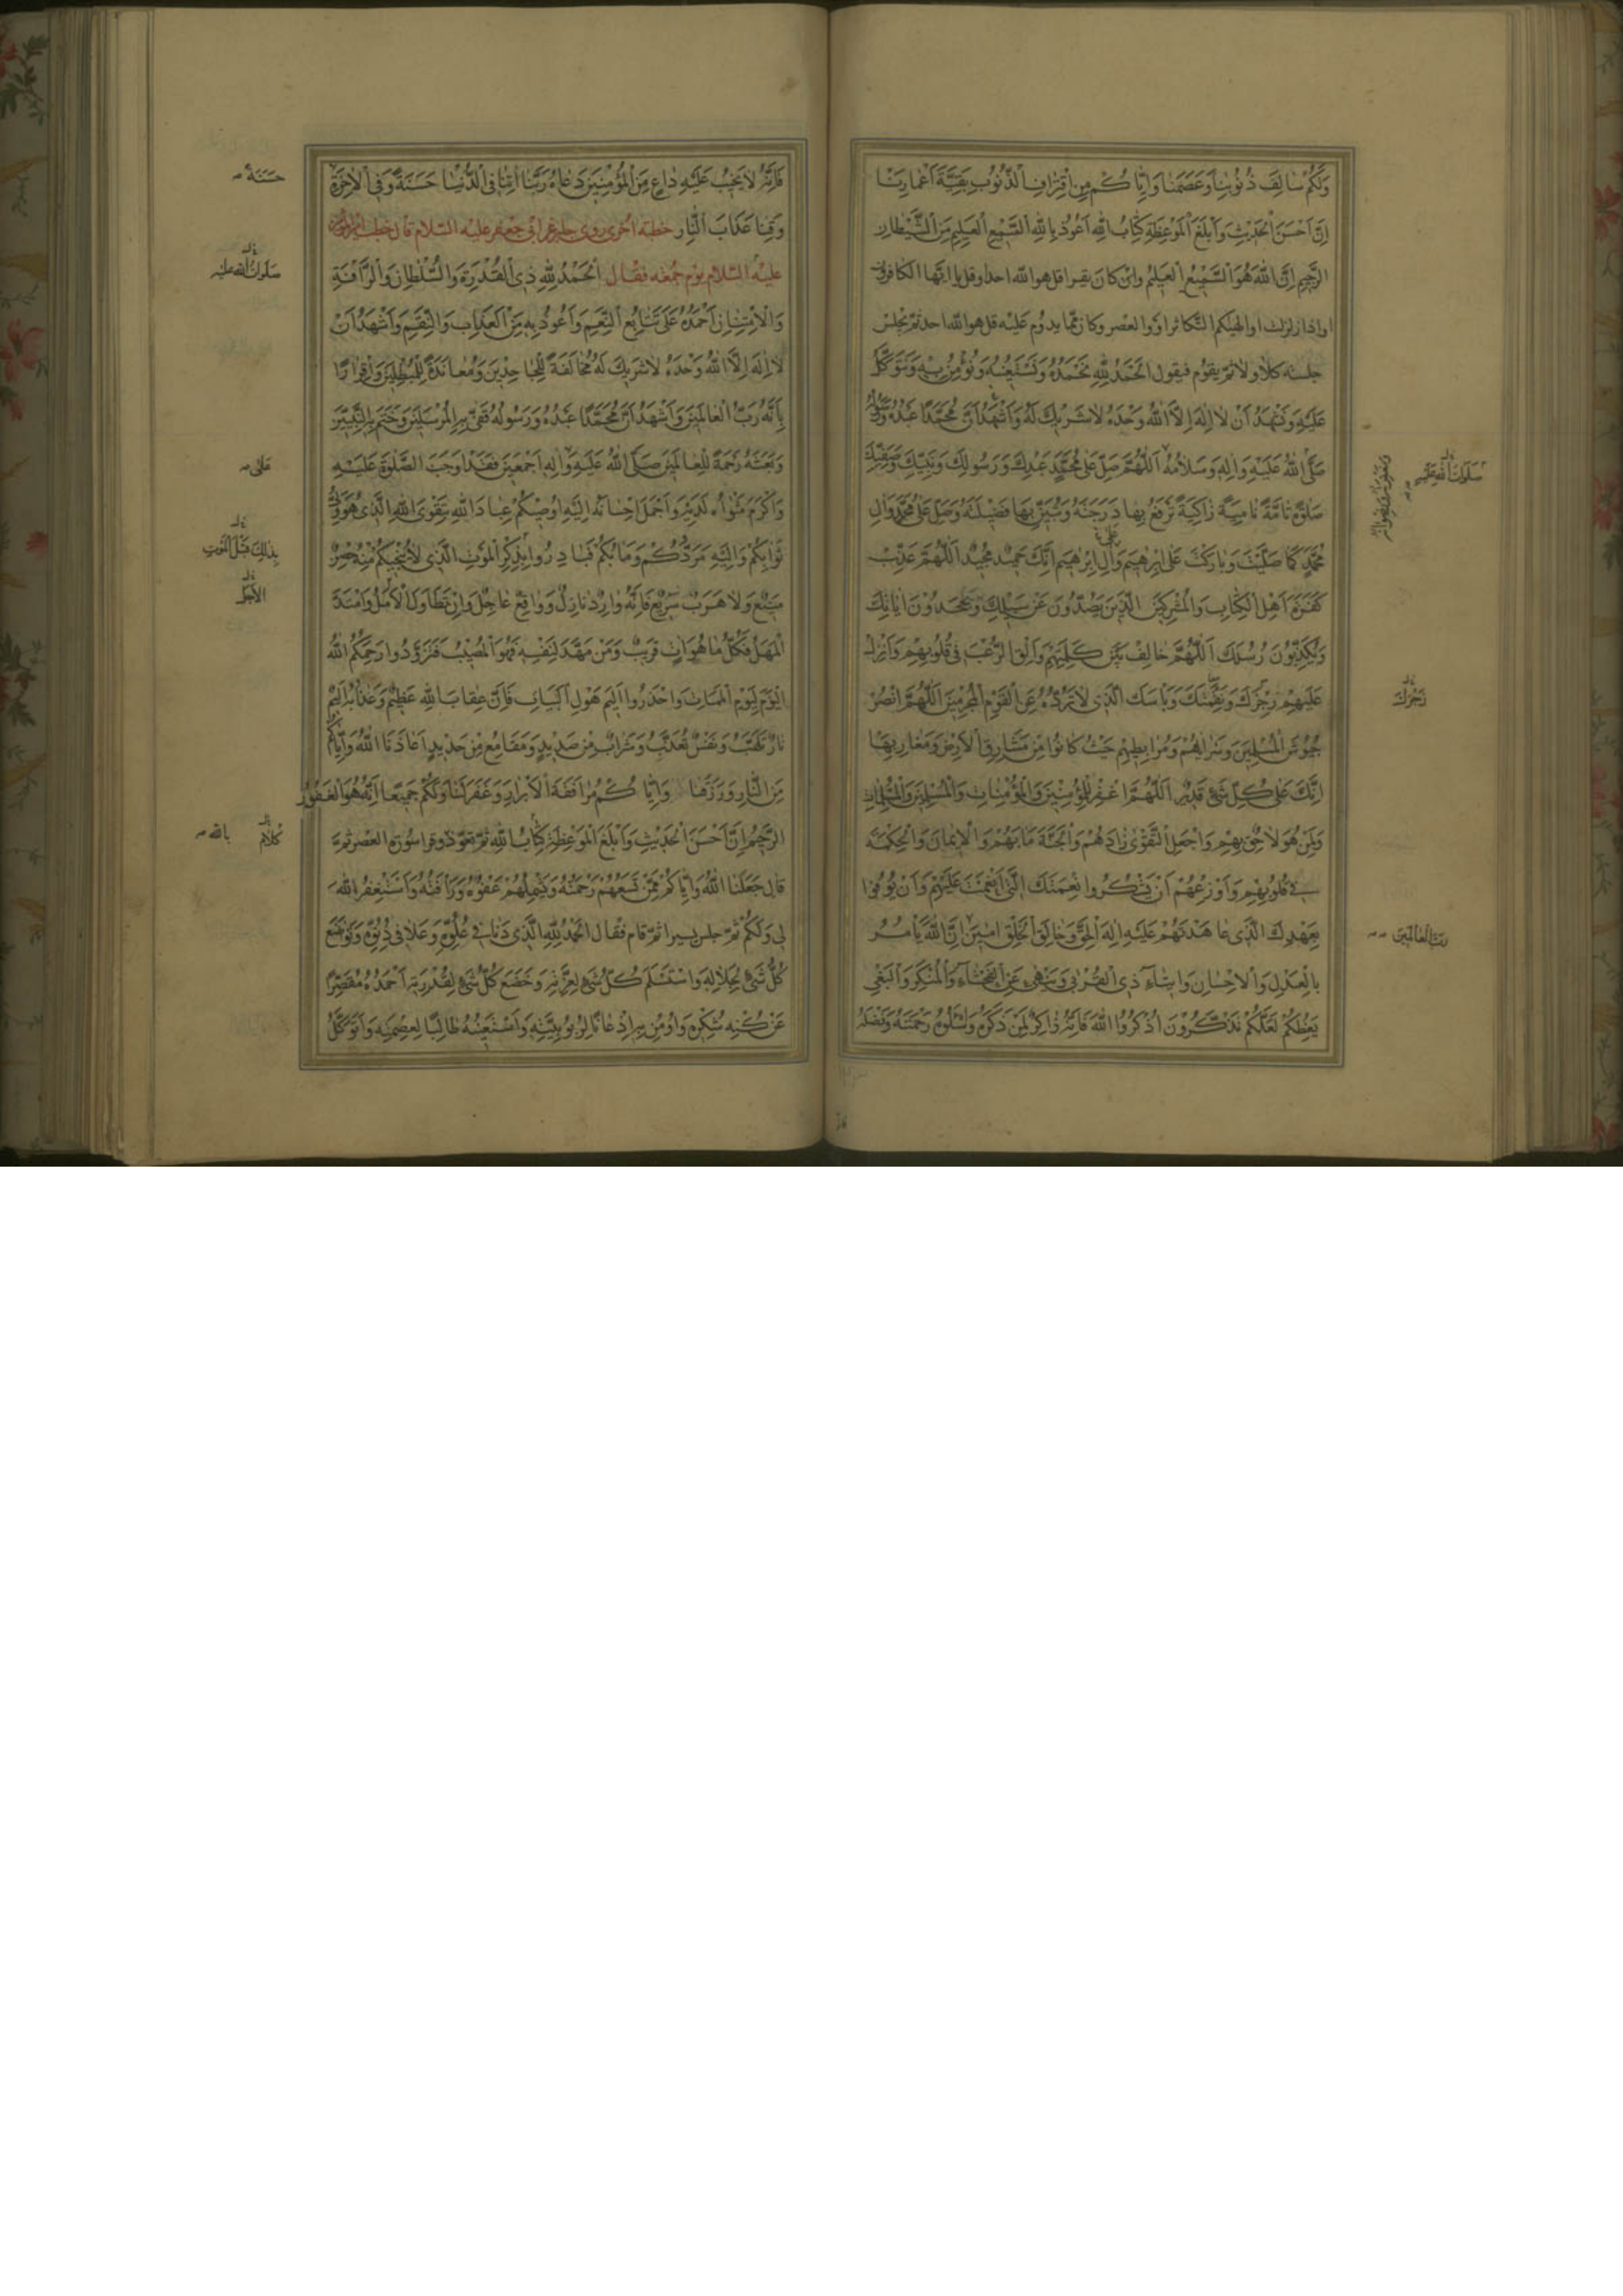 وَلَكُمْ سٰالِفَ ذُنُوبِنٰا وَعَصَمَنٰا وَاِيّٰاكُمْ مِنِ اقْتِرٰافِ الذُّنُوبِ بَقِيَّةَ اَعْمٰارِنٰا
اِنَّ اَحْسَنَ الْحَدٖيثِ وَاَبْلَغَ الْمَوْعِظَةِ كِتٰابُ اللّٰهِ اَعُوذُ بِاللّٰهِ السَّمٖيعِ الْعَلٖيمِ مِنَ الشَّيْطٰانِ
الرَّجٖيمِ اِنَّ اللّٰهَ هُوَ السَّمٖيعُ الْعَلٖيمُ وان كان يقرا قل هو اللّٰه احد او قل يا ايّها الكافرون
او اذا زلزلت او الهيكم التّكاثر او والعصر وكان ممّا يدوم عليه قل هو اللّٰه احد ثمّ يجلس
جلسة كلا ولا ثمّ يقوم فيقول اَلْحَمْدُ لِلّٰهِ نَحْمَدُهُ وَنَسْتَعٖينُهُ وَنُؤْمِنُ بِهٖ وَنَتَوَكَّلُ
عَلَيْهِ وَنَشْهَدُ اَنْ لٰا اِلٰهَ اِلَّا اللّٰهُ وَحْدَهُ لٰا شَرٖيكَ لَهُ وَاَشْهَدُ اَنَّ مُحَمَّدًا عَبْدُهُ وَرَسُولُهُ
صَلَّى اللّٰهُ عَلَيْهِ وَاٰلِهٖ وَسَلٰامُهُ اَللّٰهُمَّ صَلِّ عَلٰى مُحَمَّدٍ عَبْدِكَ وَرَسُولِكَ وَنَبِيِّكَ وَصَفِيِّكَ
صَلٰوةً تٰامَّةً نٰامِيَةً زٰاكِيَةً تَرْفَعُ بِهٰا دَرَجَتَهُ وَتُبَيِّنُ بِهٰا فَضٖيلَتَهُ وَصَلِّ عَلٰى مُحَمَّدٍ وَاٰلِ
مُحَمَّدٍ كَمٰا صَلَّيْتَ وَبٰارَكْتَ عَلٰى اِبْرٰهٖيمَ وَاٰلِ اِبْرٰهٖيمَ اِنَّكَ حَمٖيدٌ مَجٖيدٌ اَللّٰهُمَّ عَذِّبْ
كَفَرَةَ اَهْلِ الْكِتٰابِ وَالْمُشْرِكٖينَ الَّذٖينَ يَصُدُّونَ عَنْ سَبٖيلِكَ وَيَجْحَدُونَ اٰيٰاتِكَ
وَيُكَذِّبُونَ رُسُلَكَ اَللّٰهُمَّ خٰالِفْ بَيْنَ كَلِمَتِهِمْ وَاَلْقِ الرُّعْبَ فٖى قُلُوبِهِمْ وَاَنْزِلْ
عَلَيْهِمْ رِجْزَكَ وَنَقِمَتَكَ وَبَاْسَكَ الَّذٖى لٰا تَرُدُّهُ عَنِ الْقَوْمِ الْمُجْرِمٖينَ اَللّٰهُمَّ انْصُرْ
جُيُوشَ الْمُسْلِمٖينَ وَسَرٰايٰاهُمْ وَمُرٰابِطٖيهِمْ حَيْثُ كٰانُوا مِنْ مَشٰارِقِ الْاَرْضِ وَمَغٰارِبِهٰا
اِنَّكَ عَلٰى كُلِّ شَىْءٍ قَدٖيرٌ اَللّٰهُمَّ اغْفِرْ لِلْمُؤْمِنٖينَ وَالْمُؤْمِنٰاتِ وَالْمُسْلِمٖينَ وَالْمُسْلِمٰاتِ
وَلِمَنْ هُوَ لٰاحِقٌ بِهِمْ وَاجْعَلِ التَّقْوٰى زٰادَهُمْ وَالْجَنَّةَ مَاٰبَهُمْ وَالْاٖيمٰانَ وَالْحِكْمَةَ
فٖى قُلُوبِهِمْ وَاَوْزِعْهُمْ اَنْ يَشْكُرُوا نِعْمَتَكَ الَّتٖى اَنْعَمْتَ عَلَيْهِمْ وَاَنْ يُوفُوا
بِعَهْدِكَ الَّذٖى عٰاهَدْتَهُمْ عَلَيْهِ اِلٰهَ الْحَقِّ وَخٰالِقَ الْخَلْقِ اٰمٖينَ اِنَّ اللّٰهَ يَاْمُرُ
بِالْعَدْلِ وَالْاِحْسٰانِ وَاٖيتٰاءِ ذِى الْقُرْبٰى وَيَنْهٰى عَنِ الْفَحْشٰاءِ وَالْمُنْكَرِ وَالْبَغْىِ
يَعِظُكُمْ لَعَلَّكُمْ تَذَكَّرُونَ اُذْكُرُوا اللّٰهَ فَاِنَّهُ ذٰاكِرٌ لِمَنْ ذَكَرَهُ وَاسْئَلُوهُ رَحْمَتَهُ وَفَضْلَهُ
صَلَوٰاتُ اللّٰهِ عَلَيْهِ
زَجْرَكَ
رَبَّ الْعٰالَمٖينَ
فَاِنَّهُ لٰا يَخٖيبُ عَلَيْهِ دٰاعٍ مِنَ الْمُؤْمِنٖينَ دَعٰاهُ رَبَّنٰا اٰتِنٰا فِى الدُّنْيٰا حَسَنَةً وَفِى الْاٰخِرَةِ
وَقِنٰا عَذٰابَ النّٰارِ خطبة اخرى روى جابر عن ابى جعفر عليه السّلام قال خطب امير المؤمنين
عليه السّلام يوم جمعة فقال اَلْحَمْدُ لِلّٰهِ ذِى الْقُدْرَةِ وَالسُّلْطٰانِ وَالرَّاْفَةِ
وَالْاِمْتِنٰانِ اَحْمَدُهُ عَلٰى تَتٰابُعِ النِّعَمِ وَاَعُوذُ بِهٖ مِنَ الْعَذٰابِ وَالنِّقَمِ وَاَشْهَدُ اَنْ
لٰا اِلٰهَ اِلَّا اللّٰهُ وَحْدَهُ لٰا شَرٖيكَ لَهُ مُخٰالَفَةً لِلْجٰاحِدٖينَ وَمُعٰانَدَةً لِلْمُبْطِلٖينَ وَاِقْرٰارًا
بِاَنَّهُ رَبُّ الْعٰالَمٖينَ وَاَشْهَدُ اَنَّ مُحَمَّدًا عَبْدُهُ وَرَسُولُهُ قَفّٰى بِهِ الْمُرْسَلٖينَ وَخَتَمَ بِهِ النَّبِيّٖينَ
وَبَعَثَهُ رَحْمَةً لِلْعٰالَمٖينَ صَلَّى اللّٰهُ عَلَيْهِ وَاٰلِهٖ اَجْمَعٖينَ فَقَدْ اَوْجَبَ الصَّلٰوةَ عَلَيْهِ
وَاَكْرَمَ مَثْوٰاهُ لَدَيْهِ وَاَجْمَلَ اِحْسٰانَهُ اِلَيْهِ اُوصٖيكُمْ عِبٰادَ اللّٰهِ بِتَقْوَى اللّٰهِ الَّذٖى هُوَ وَلِىُّ
ثَوٰابِكُمْ وَاِلَيْهِ مَرَدُّكُمْ وَمَاٰبُكُمْ فَبٰادِرُوا بِذِكْرِ الْمَوْتِ الَّذٖى لٰا يُنْجٖيكُمْ مِنْهُ حِصْنٌ
مَنٖيعٌ وَلٰا هَرَبٌ سَرٖيعٌ فَاِنَّهُ وٰارِدٌ نٰازِلٌ وَوٰاقِعٌ عٰاجِلٌ وَاِنْ تَطٰاوَلَ الْاَمَلُ وَامْتَدَّ
الْمَهَلُ فَكُلُّ مٰا هُوَ اٰتٍ قَرٖيبٌ وَمَنْ مَهَّدَ لِنَفْسِهٖ فَهُوَ الْمُصٖيبُ فَتَزَوَّدُوا رَحِمَكُمُ اللّٰهُ
الْيَوْمَ لِيَوْمِ الْمَمٰاتِ وَاحْذَرُوا اَلٖيمَ هَوْلِ الْبَيٰاتِ فَاِنَّ عِقٰابَ اللّٰهِ عَظٖيمٌ وَعَذٰابَهُ اَلٖيمٌ
نٰارٌ تَلَهَّبُ وَنَفْسٌ تُعَذَّبُ وَشَرٰابٌ مِنْ صَدٖيدٍ وَمَقٰامِعُ مِنْ حَدٖيدٍ اَعٰاذَنَا اللّٰهُ وَاِيّٰاكُمْ
مِنَ النّٰارِ وَرَزَقَنٰا وَاِيّٰاكُمْ مُرٰافَقَةَ الْاَبْرٰارِ وَغَفَرَ لَنٰا وَلَكُمْ جَمٖيعًا اِنَّهُ هُوَ الْغَفُورُ
الرَّحٖيمُ اِنَّ اَحْسَنَ الْحَدٖيثِ وَاَبْلَغَ الْمَوْعِظَةِ كِتٰابُ اللّٰهِ ثمّ تعوّذ وقرا سورة العصر ثمّ
قال جَعَلَنَا اللّٰهُ وَاِيّٰاكُمْ مِمَّنْ تَسَعُهُمْ رَحْمَتُهُ وَيَشْمَلُهُمْ عَفْوُهُ وَرَاْفَتُهُ وَاَسْتَغْفِرُ اللّٰهَ
لٖى وَلَكُمْ ثمّ جلس يسيرا ثمّ قام فقال اَلْحَمْدُ لِلّٰهِ الَّذٖى دَنٰا فٖى عُلُوِّهٖ وَعَلٰا فٖى دُنُوِّهٖ وَتَوٰاضَعَ
كُلُّ شَىْءٍ لِجَلٰالِهٖ وَاسْتَسْلَمَ كُلُّ شَىْءٍ لِعِزَّتِهٖ وَخَضَعَ كُلُّ شَىْءٍ لِقُدْرَتِهٖ اَحْمَدُهُ مُقَصِّرًا
عَنْ كُنْهِ شُكْرِهٖ وَاُومِنُ بِهٖ اِذْعٰانًا لِرُبُوبِيَّتِهٖ وَاَسْتَعٖينُهُ طٰالِبًا لِعِصْمَتِهٖ وَاَتَوَكَّلُ
حَسَنَةً
صَلَوٰاتُ اللّٰهِ عَلَيْهِ
عَلٰى
بِذٰلِكَ قَبْلَ الْمَوْتِ
الْاَجَلُ
كَلٰامُ
بِاللّٰهِ